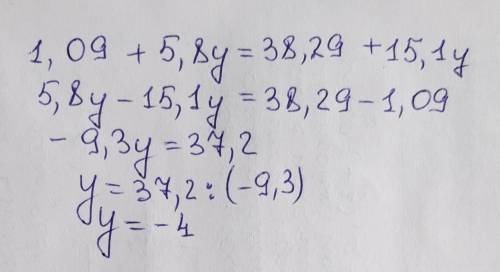 1,09 + 5,8y = 38,29 + 15,1y
5,8y - 15,1y = 38,29 - 1,09
- 9,3y = 37,2
y = 37,2 : (-9,3)
y = -4